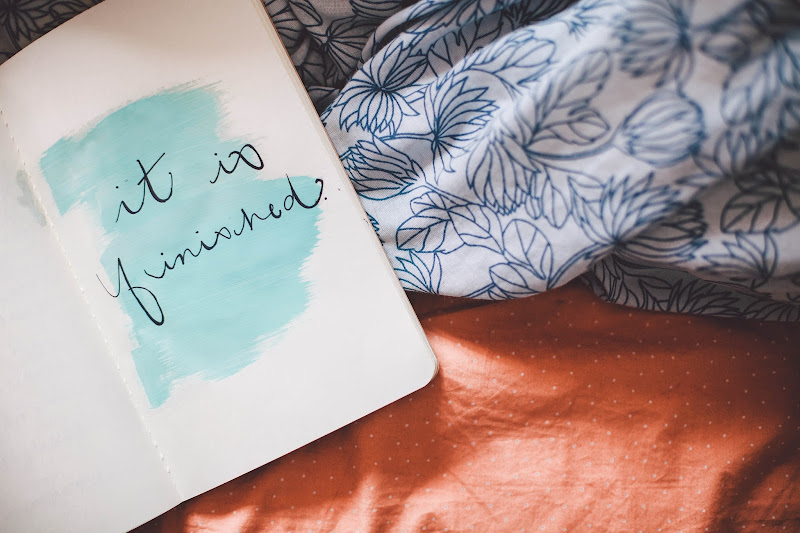 it is
finished.